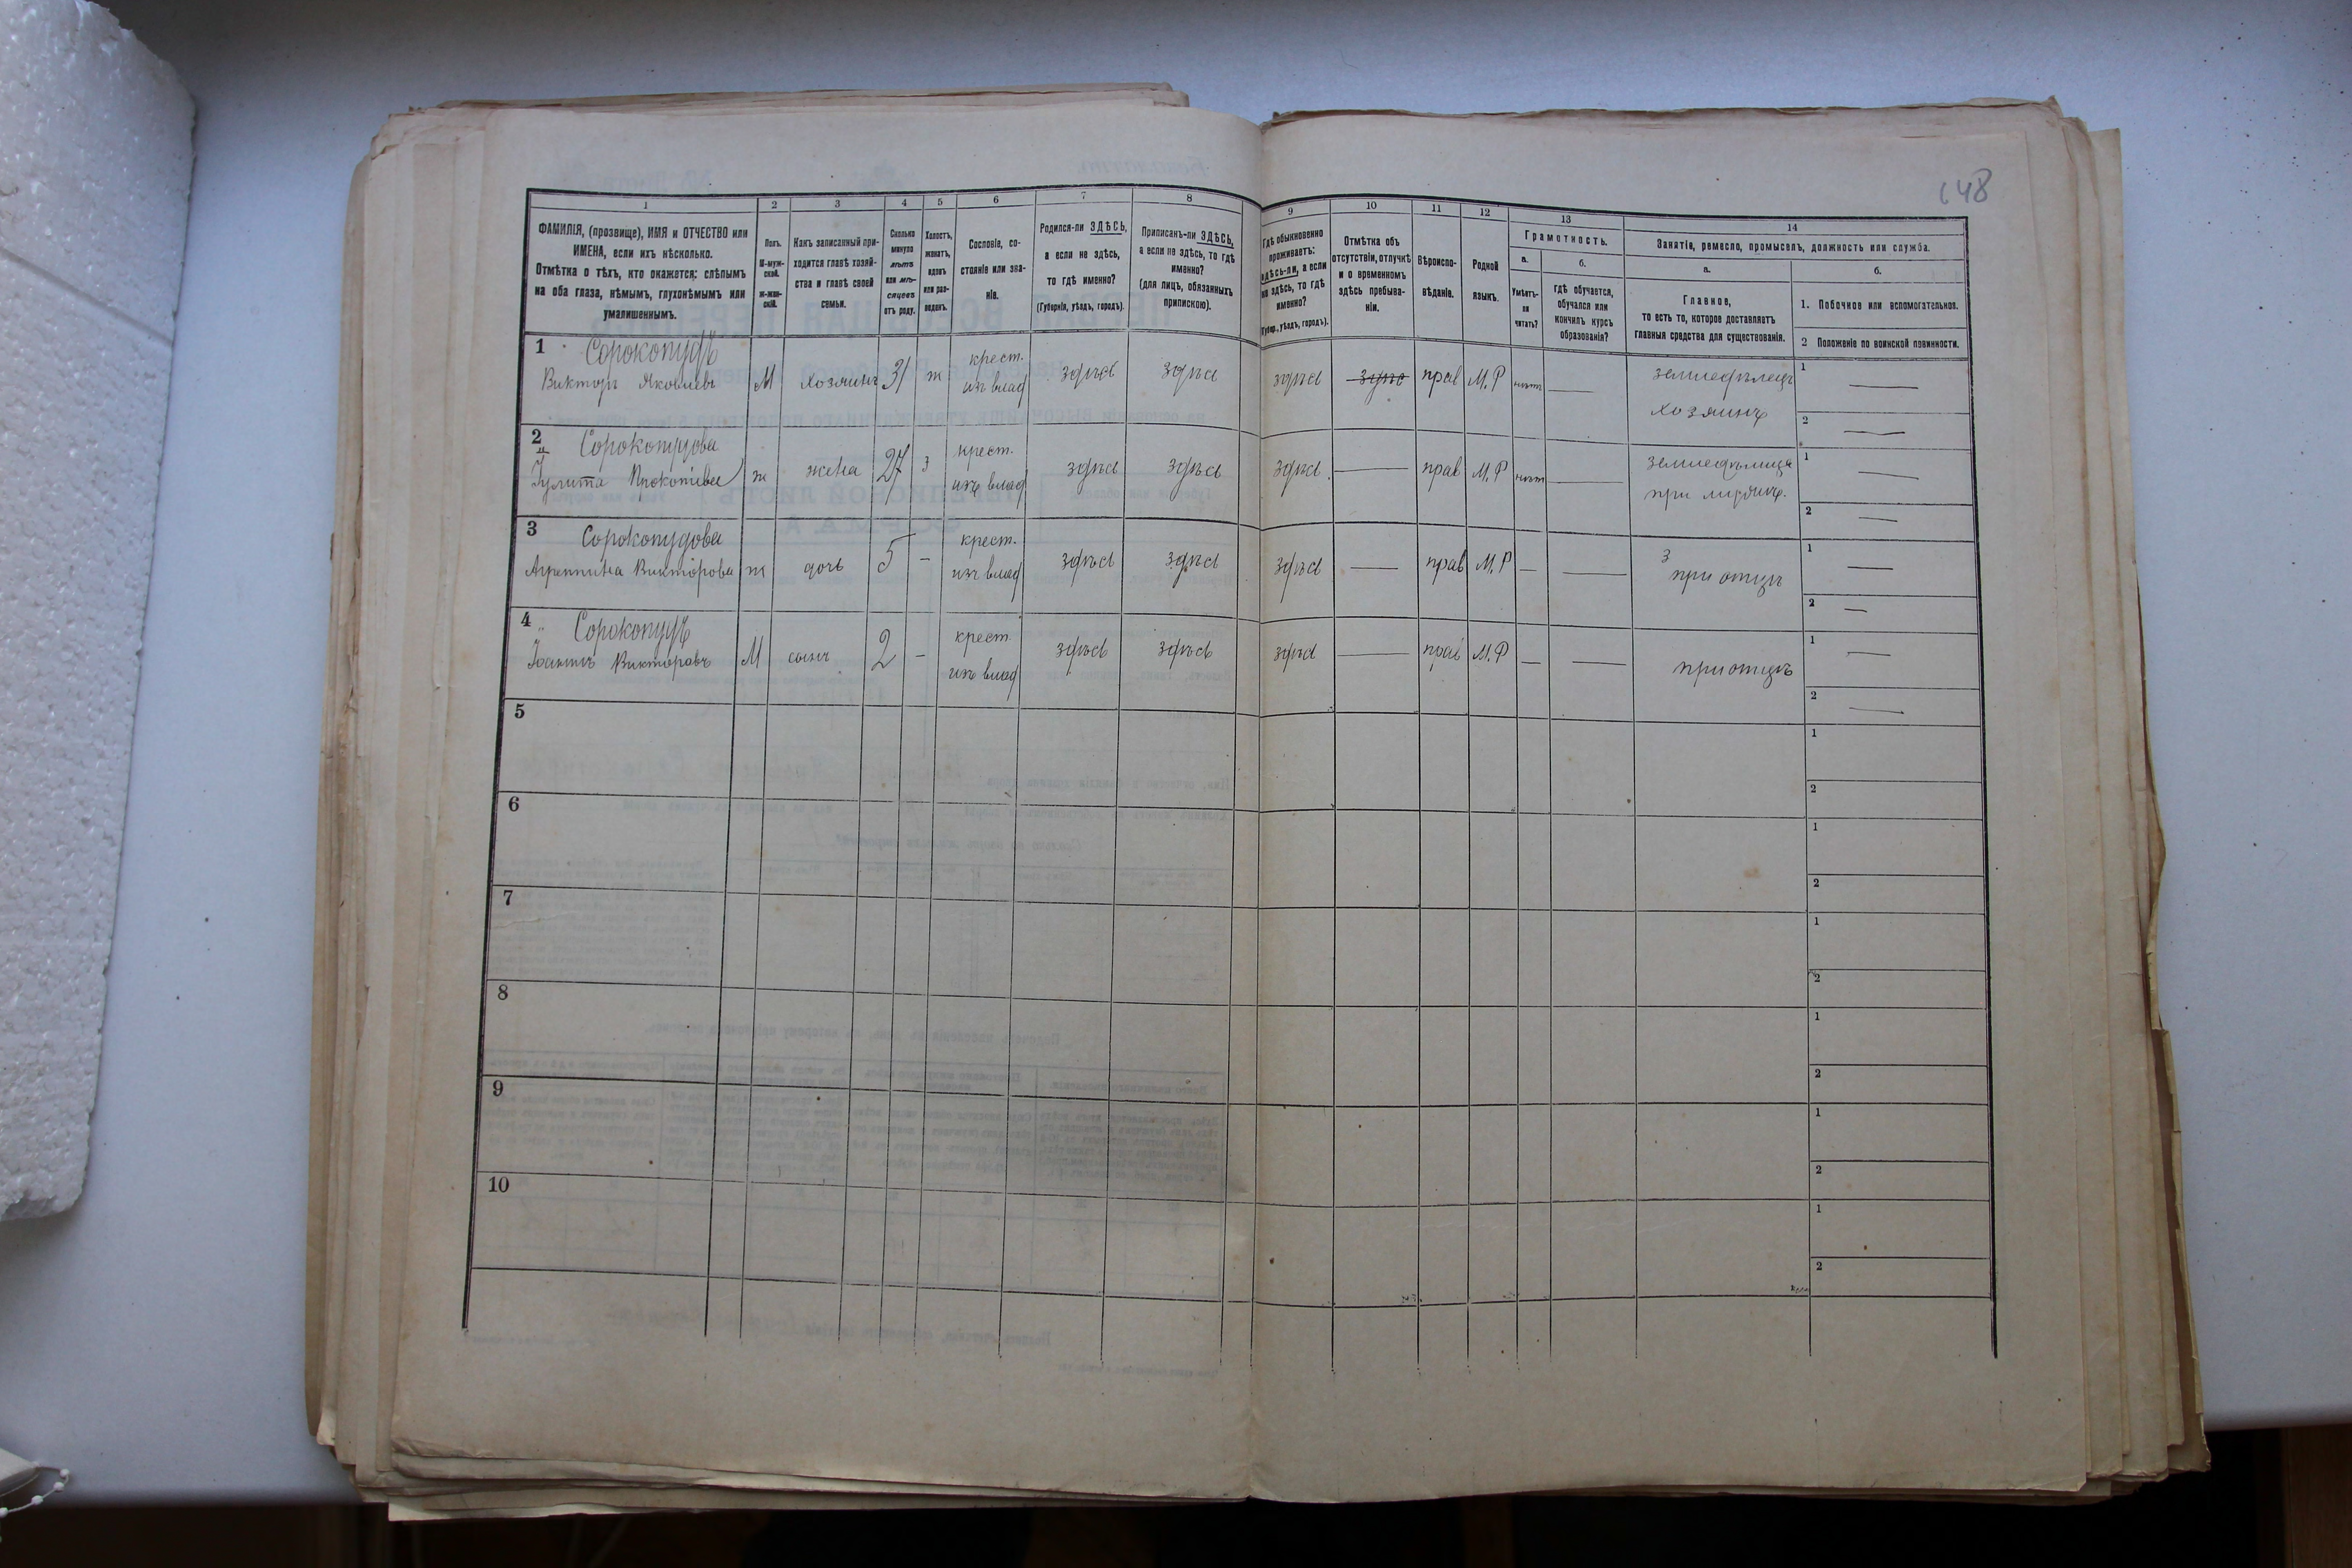 148
1
ФАМИЛІЯ, (прозвище), ИМЯ и ОТЧЕСТВО или
ИМЕНА, если ихъ нѣсколько.
Отмѣтка о тѣхъ, кто окажется: слѣпымъ
на оба глаза, нѣмымъ, глухонѣмымъ или
умалишеннымъ.
2
Полъ.
М-муж-
ской.
ж-жен-
скій.
3
Какъ записанный при-
ходится главѣ хозяй-
ства и главѣ своей
семьи.
4
Сколько
минуло
лѣтъ
или мѣ-
сяцевъ
отъ роду.
5
Холостъ,
женатъ,
вдовъ
или раз-
веденъ.
6
Сословіе, со-
стояніе или зва-
ніе.
7
Родился-ли ЗДѢСЬ,
а если не здѣсь,
то гдѣ именно?
(Губернія, уѣздъ, городъ).
8
Приписанъ-ли ЗДѢСЬ,
а если не здѣсь, то гдѣ
именно?
(для лицъ, обязанныхъ
припискою).
9
Гдѣ обыкновенно
проживаетъ:
здѣсь-ли, а если
не здѣсь, то гдѣ
именно?
(Губер., уѣздъ, городъ).
10
Отмѣтка объ
отсутствіи, отлучкѣ
и о временномъ
здѣсь пребыва-
ніи.
11
Вѣроиспо-
вѣданіе.
12
Родной
языкъ.
13
Грамотность.
а.
Умѣетъ-
ли
читать?
б.
гдѣ обучается,
обучался или
кончилъ курсъ
образованія?
14
Занятіе, ремесло, промыселъ, должность или служба.
а.
Главное,
то есть то, которое доставляетъ
главныя средства для существованія.
б.
1. Побочное или вспомогательное.
2 Положеніе по воинской повинности.
1 Сорокопудъ
Викторъ Яковлевъ М хозяинъ 31 ж крест. изъ влад здѣсь здѣсь здѣсь здѣсь прав М.Р нѣтъ — земледѣлецъ
хозяинъ
1 —
2 —
2 Сорокопудова
Іулита Прокопіева ж жена 27 з крест. изъ влад здѣсь здѣсь здѣсь — прав М.Р нѣтъ —
1 —
2 —
3 Сорокопудова
Агреппина Викторова ж дочь 5 — крест. изъ влад здѣсь здѣсь здѣсь — прав М.Р — — при отцѣ
1 —
2 —
4 Сорокопудъ
Іоаннъ Викторовъ М сынъ 2 — крест. изъ влад здѣсь здѣсь здѣсь — прав М.Р — — при отцѣ
1 —
2 —
5
1
2
6
1
2
7
1
2
8
1
2
9
1
2
10
1
2